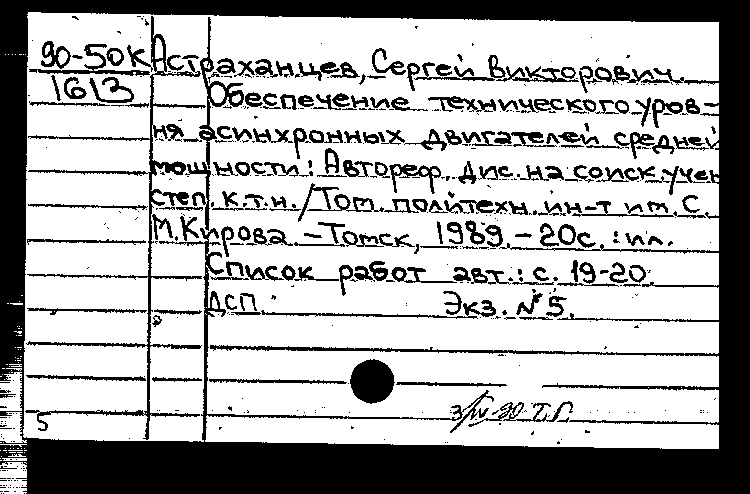 90-50К Астраханцев, Сергей Викторович.
1613 Обеспечение технического уров-
ня асинхронных двигателей средней
мощности: Автореф. дис. на соиск. учен
степ. к.т.н. / Том. политехн. ин-т им. С.
М. Кирова. – Томск, 1989. – 20с. : ил.
Список работ авт.: с. 19-20.
ДСП. Экз. № 5.
3/IV-90 Т.Г.
5